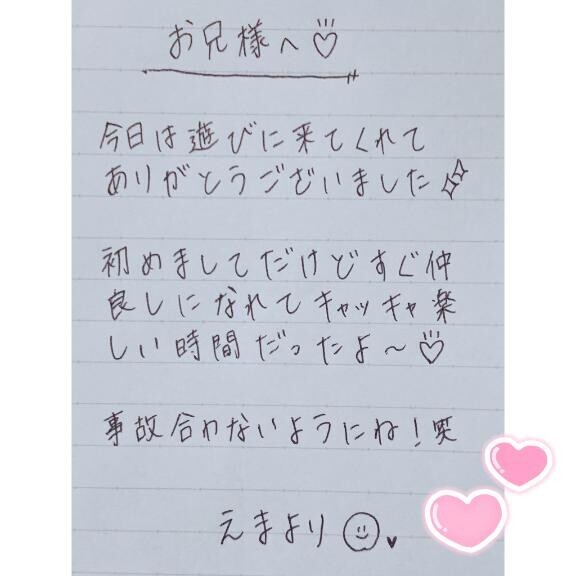 お兄様へ♡
今日は遊びに来てくれて
ありがとうございました✨
初めましてだけどすぐ仲
良しになれてキャッキャ楽
しい時間だったよ〜♡
事故合わないようにね！笑
えまより☺♥